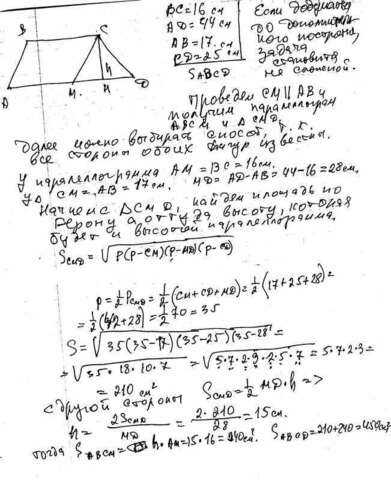 B C
h
A M H D
BC=16 см
AD=44 см
AB=17 см
CD=25 см
S ABCD
Если
до
ного построен.,
задача
становится
не сложной.
Проведём CM || AB и
получим параллелограм
ABCM и Δ CMD.
Далее можно выбирать способ, т. к.
все стороны обоих фигур известны.
У параллелограмма AM = BC = 16см.
У Δ CM = AB = 17см. MD = AD-AB = 44-16=28см.
Начнём с ΔCMD, найдём площадь по
Герону а оттуда высоту, которая
будет и высотой параллелограмма.
S CMD = √P(P-CM)(P-MD)(P-CD)
P = 1/2 P CMD = 1/2 (CM+CD+MD) = 1/2 (17+25+28) =
= 1/2 (42+28) = 1/2 70 = 35
S = √35(35-17)(35-25)(35-28) =
= √35·18·10·7 = √5·7·2·9·2·5·7 = 5·7·2·3 =
= 210 см²
с другой стороны S CMD = 1/2 MD·h =>
h = 2S CMD / MD = 2·210 / 28 = 15см.
тогда S ABCM = h·AM = 15·16 = 240см². S ABCD = 210+240 = 450см²